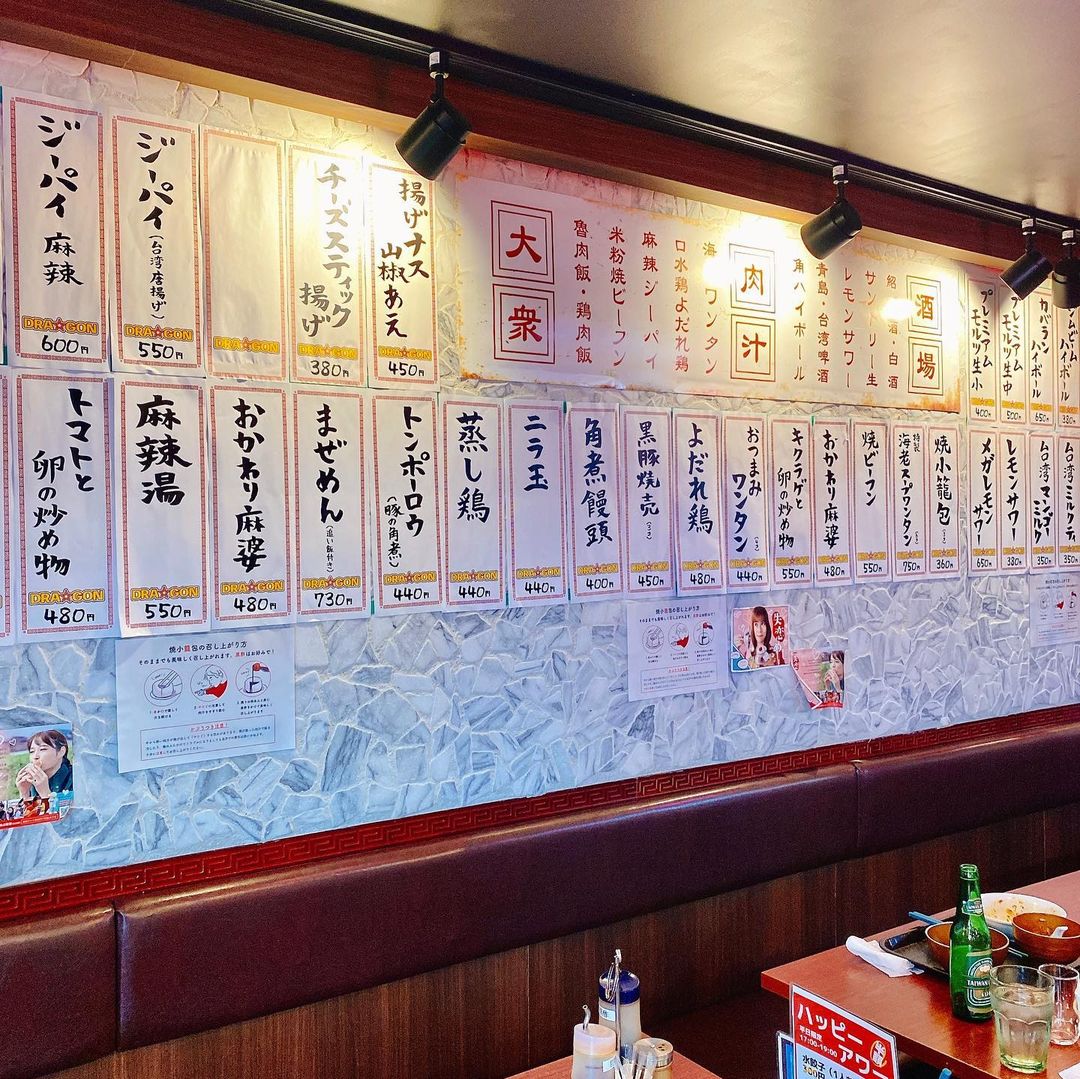 ジーパイ 麻辣
DRA★GON
600円
ジーパイ
(台湾唐揚げ)
DRA★GON
550円
DRA★GON
チーズスティック
揚げ
380円
揚げナス
山椒あえ
DRA★GON
450円
大衆
肉汁
酒場
魯肉飯・鶏肉飯
米粉焼ビーフン
麻辣ジーパイ
口水鶏よだれ鶏
ワンタン
角ハイボール
青島・台湾啤酒
レモンサワー
サントリー生
酒・白酒
プレミアム
モルツ生小
400円
プレミアム
モルツ生中
500円
カバラン
ハイボール
650円
ハイボール
380円
トマトと
卵の炒め物
DRA★GON
480円
麻辣湯
DRA★GON
550円
おかわり麻婆
DRA★GON
480円
まぜめん
(追い飯付き)
DRA★GON
730円
トンポーロウ
(豚の角煮)
DRA★GON
440円
蒸し鶏
DRA★GON
440円
ニラ玉
DRA★GON
440円
角煮饅頭
DRA★GON
400円
黒豚焼売
DRA★GON
450円
よだれ鶏
DRA★GON
480円
おつまみ
ワンタン
DRA★GON
440円
キクラゲと
卵の炒め物
DRA★GON
550円
おかわり麻婆
DRA★GON
480円
焼ビーフン
DRA★GON
550円
特製
海老スープワンタン
DRA★GON
750円
焼小籠包
DRA★GON
360円
メガレモン
サワー
650円
レモンサワー
380円
台湾マンゴー
ミルク
350円
台湾ミルクティ
350円
焼小籠包の召し上がり方
そのままでも美味しく召し上がれます。黒酢はお好みで!
やぶうつき注意!
失恋
TAIWAN
ハッピー
アワー
平日限定
17:00-19:00
水餃子
300円